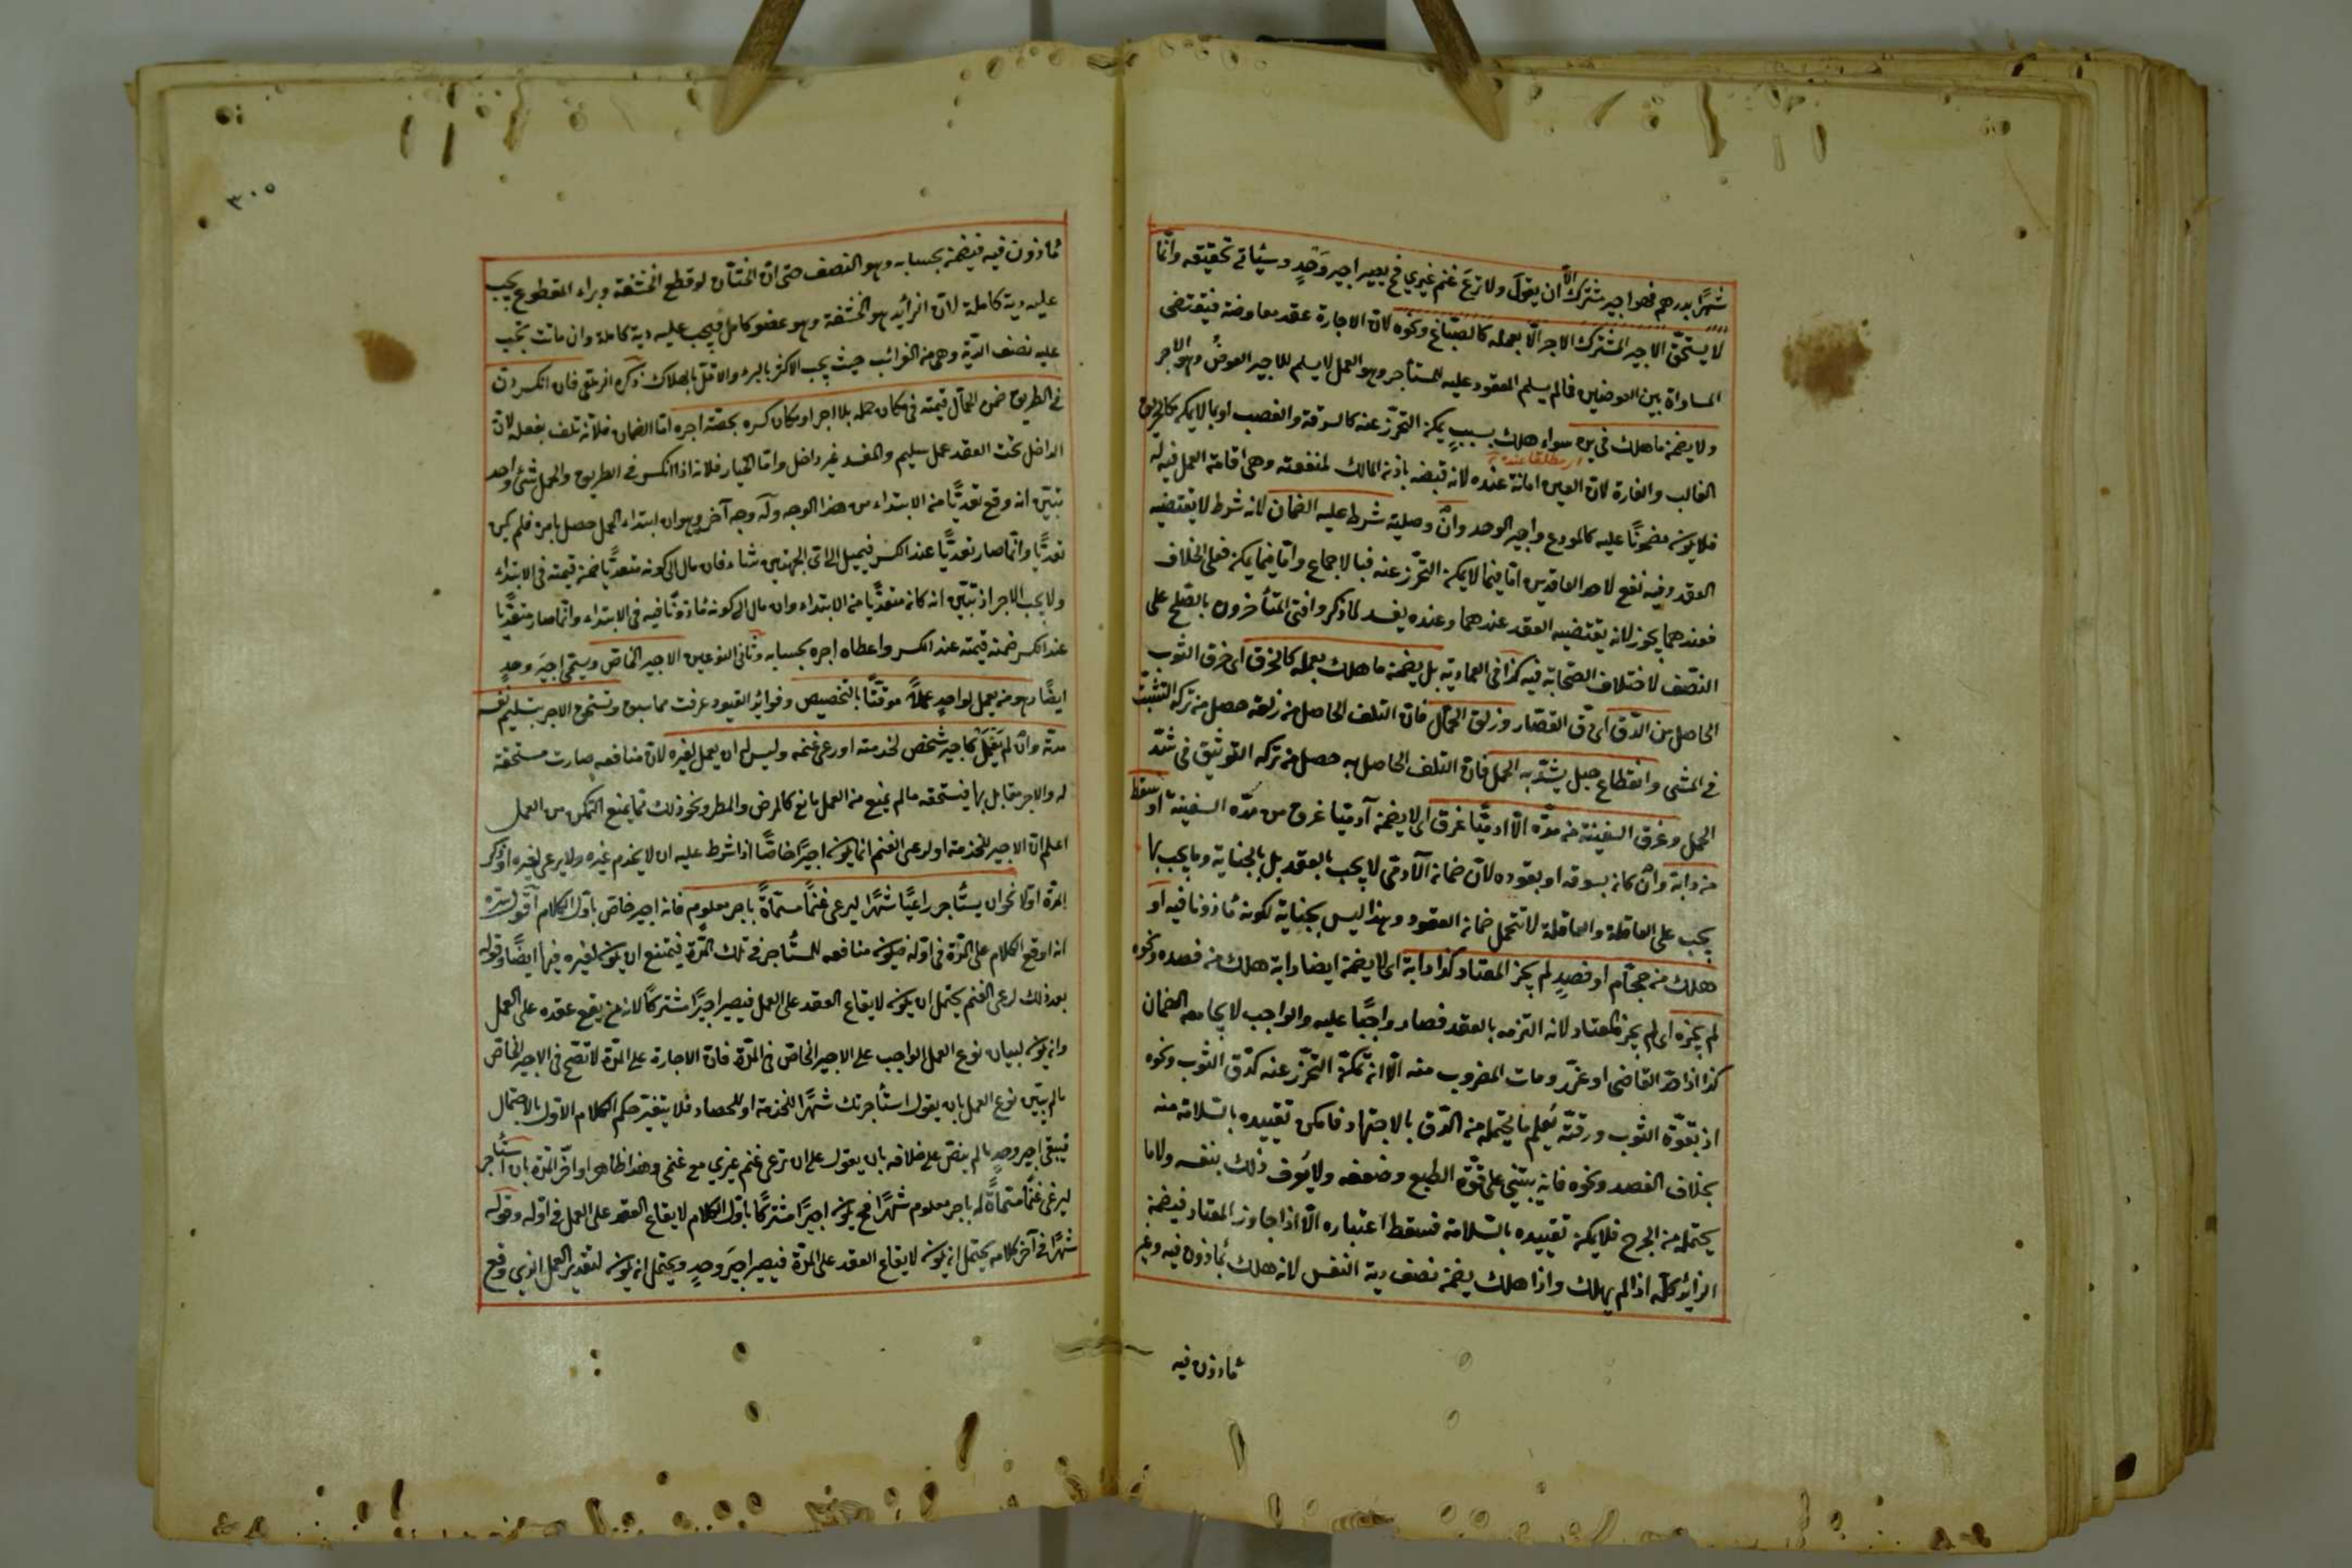 شهرًا بدرهم فهو اجير مشترك الّا ان يقول ولا ترع غنم غيري فح يصير اجير وحدٍ وسيأتي تحقيقه وانّما
لا يستحق الاجير المشترك الاجر الّا بعمله كالصبّاغ ونحوه لان الاجارة عقد معاوضة فيقتضى
المساواة بين العوضين فما لم يسلم المعقود عليه للمستأجر وهو العمل لا يسلم للاجير العوض وهو الاجر
ولا يضمن ما هلك في يده سواء هلك بسببٍ يمكن التحرّز عنه كالسرقة والغصب او بما لا يمكن كالحريق
اى مطلقا عنده
الغالب والغارة لان العين امانة عنده لانه قبضه باذن المالك لمنفعته وهي اقامة العمل فيه له
فلا يكون مضمونًا عليه كالمودع واجير الوحد وانْ وصلية شرط عليه الضمان لانه شرط لا يقتضيه
العقد وفيه نفع لاحد العاقدين امّا فيما لا يمكن التحرّز عنه فبالاجماع وامّا فيما يمكن فعلى الخلاف
فعندهما يجوز لانه يقتضيه العقد عندهما وعنده يفسد لما ذكر وافتى المتأخرون بالصّلح على
النصف لاختلاف الصّحابة فيه كذا في العمادية بل يضمن ما هلك بعمله كالخرق اى خرق الثوب
الحاصل من الدّق اى دقّ القصّار وزلق الحمّال فان التلف الحاصل من زلقه حصل من تركه التثبت
في المشى وانقطاع حبل يشدّ به الحمل فان التلف الحاصل به حصل من تركه التوثيق في شدّ
الحمل وغرق السفينة من مدّه الّا آدميّا غرق اى لا يضمن آدميّا غرق من مدّه السفينة او سقط
من دابة وان كان بسوقه او بقوده لان ضمان الآدمى لا يجب بالعقد بل بالجناية وما يجب بها
يجب على العاقلة والعاقلة لا تتحمل ضمان العقود وهذا ليس بجناية لكونه مأذونا فيه او
هلك من حجّام او فصيدٍ لم يجز المعتاد كذا دابة اى لا يضمن ايضا دابة هلك من فصده ونحوه
لم يجزه اى لم يجز المعتاد لانه التزمه بالعقد فصار واجبًا عليه والواجب لا يجامعه الضمان
كما اذا حدّ القاضى او عزّر ومات المضروب منه الّا انه يمكن التحرّز عنه كدقّ الثوب ونحوه
اذ بقوّة الثوب ورقته يُعلم ما يحتمله من الدّق بالاجتهاد فامكن تقييده بالسّلامة منه
بخلاف الفصد ونحوه فانه يبتني على قوّة الطبع وضعفه ولا يُعرف ذلك بنفسه ولا ما
يحتمله من الجرح فلا يمكن تقييده بالسّلامة فسقط اعتباره الّا اذا جاوز المعتاد فيضمن
الزائد كلّه اذا لم يهلك واذا هلك يضمن نصف دية النفس لانه هلك بمأذون فيه وغير
مأذون فيه
٣٠٥
مأذون فيه فيضمن بحسابه وهو النصف حتى انّ الختّان لو قطع الحشفة وبراء المقطوع يجب
عليه دية كاملة لانّ الزائد هو الحشفة وهو عضو كامل فيجب عليه دية كاملة وان مات يجب
عليه نصف الدّية وهي من الغرائب حيث يجب الاكثر بالبرء والاقلّ بالهلاك ذكره الزيلعي فان انكسر دن
في الطريق ضمن الحمّال قيمته في مكان حمله بلا اجر او مكان كسره بحصّة اجره امّا الضمان فلانّه تلف بفعله لان
الداخل تحت العقد عمل سليم والمفسد غير داخل وامّا الخيار فلانه اذا انكسر في الطريق والحمل شئ واحد
تبيّن انه وقع تعدّيًا من الابتداء من هذا الوجه وله وجه آخر وهو ان ابتداء الحمل حصل بامره فلم يكن
تعدّيًا وانّما صار تعدّيًا عند الكسر فيميل الى اىّ الجهتين شاء فان مال الى كونه متعدّيًا ضمن قيمته في الابتداء
ولا يجب الاجر اذ تبيّن انه كان متعدّيًا من الابتداء وان مال الى كونه مأذونًا فيه في الابتداء وانّما صار متعدّيًا
عند الكسر ضمنه قيمته عند الكسر واعطاه اجره بحسابه وثانى النوعين الاجير الخاصّ ويسمّى اجير وحدٍ
ايضًا وهو من يعمل لواحدٍ عملًا موقتًا بالتخصيص وفوائد القيود عرفت مما سبق ويستحق الاجر بتسليم نفسه
مدّته وان لم يعمل كاجير شخص لخدمته او رعى غنمه وليس له ان يعمل لغيره لانّ منافعه صارت مستحقة
له والاجر مقابل بها فيستحقه مالم يمنع من العمل مانع كالمرض والمطر ونحو ذلك ممّا يمنع التمكن من العمل
اعلم انّ الاجير للخدمة او لرعى الغنم انما يكون اجيرًا خاصًّا اذا شرط عليه ان لا يخدم غيره ولا يرعى لغيره او ذكر
المدّة اوّلا نحو ان يستأجر راعيًا شهرًا ليرعى غنمًا مسمّاةً باجر معلوم فانه اجير خاص باوّل الكلام اقول سرّه
انه اوقع الكلام على المدّة في اوّله فيكون منافعه للمستأجر في تلك المدّة فيمتنع ان يكون لغيره فيها ايضًا وقوله
بعد ذلك لرعى الغنم يحتمل ان يكون لايقاع العقد على العمل فيصير اجيرًا مشتركًا لانه من يقع عقده على العمل
وان يكون لبيان نوع العمل الواجب على الاجير الخاصّ في المدّة فانّ الاجارة على المدّة لا تصحّ في الاجير الخاصّ
مالم يبيّن نوع العمل بان يقول استأجرتك شهرًا للخدمة او للحصاد فلا يتغير حكم الكلام الاول بالاحتمال
فيبقى اجير وحدٍ مالم ينصّ على خلافه بان يقول على ان ترعى غنم غيري مع غنمى وهذا ظاهر او اخّر المدّة بان استأجر
ليرعى غنمًا مسمّاةً له باجر معلوم شهرًا فح يكون اجيرًا مشتركًا باوّل الكلام لايقاع العقد على العمل في اوّله وقوله
شهرًا في آخر كلامه يحتمل ان يكون لايقاع العقد على المدّة فيصير اجير وحدٍ ويحتمل ان يكون لتقدير العمل الذى وقع